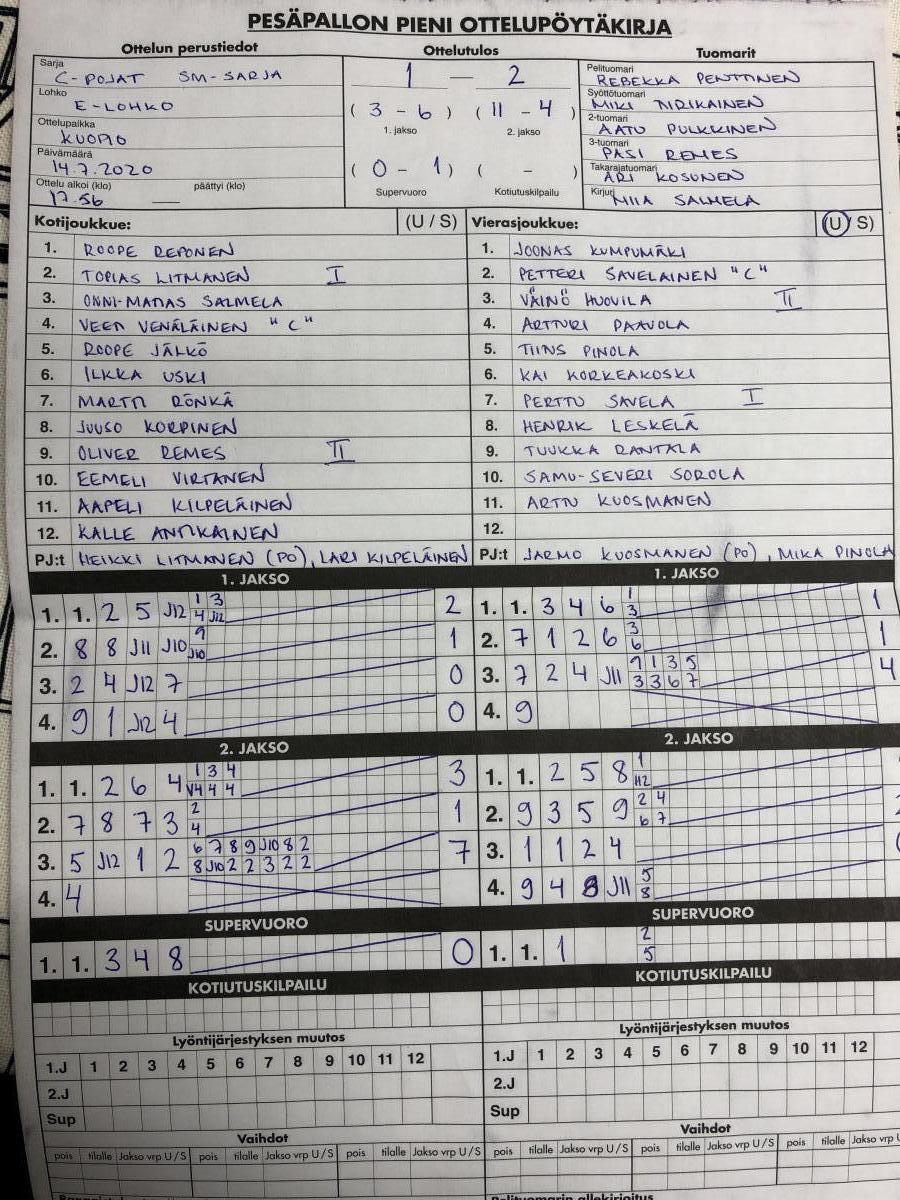 PESÄPALLON PIENI OTTELUPÖYTÄKIRJA
Ottelun perustiedot Ottelutulos Tuomarit
Sarja C-POJAT SM-SARJA
Lohko E-LOHKO
Ottelupaikka KUOPIO
Päivämäärä 14.7.2020
Ottelu alkoi (klo) 17.56 päättyi (klo) —
1 — 2
(3 - 6) (11 - 4)
1. jakso 2. jakso
(0 - 1) ( - )
Supervuoro Kotiutuskilpailu
Pelituomari REBEKKA PENTTINEN
Syöttötuomari MIKI TIRIKAINEN
2-tuomari AATU PULKKINEN
3-tuomari PASI REMES
Takarajatuomari ARI KOSUNEN
Kirjuri MIIA SALMELA
Kotijoukkue: (U / S)
1. ROOPE REPONEN
2. TOPIAS LITMANEN I
3. ONNI-MATIAS SALMELA
4. VEETI VENÄLÄINEN "C"
5. ROOPE JÄLKÖ
6. ILKKA USKI
7. MARTTI RÖNKÄ
8. JUUSO KORPINEN
9. OLIVER REMES II
10. EEMELI VIRTANEN
11. AAPELI KILPELÄINEN
12. KALLE ANTIKAINEN
PJ:t HEIKKI LITMANEN (PO), LARI KILPELÄINEN
Vierasjoukkue: (U / S)
1. JOONAS KUMPUMÄKI
2. PETTERI SAVELAINEN "C"
3. VÄINÖ HUOVILA II
4. ARTTURI PAAVOLA
5. TIINS PINOLA
6. KAI KORKEAKOSKI
7. PERTTU SAVELA I
8. HENRIK LESKELÄ
9. TUUKKA RANTALA
10. SAMU-SEVERI SOROLA
11. ARTTU KUOSMANEN
12.
PJ:t JARMO KUOSMANEN (PO), MIKA PINOLA
1. JAKSO
1. 1. 2 5 J12 1 3 2
4 J12
2. 8 8 J11 J10 9 1
J10
3. 2 4 J12 7 0
4. 9 1 J12 4 0
1. JAKSO
1. 1. 3 4 6 1 1
3
2. 7 1 2 6 3 1
6
3. 7 2 4 J11 9 1 3 5 4
3 3 6 7
4. 9
2. JAKSO
1. 1. 2 6 4 1 3 4 3
4 4 4
2. 7 8 7 3 2 1
4
3. 5 J12 1 2 6 7 8 9 J10 8 2 7
8 J10 2 2 3 2 2
4. 4
2. JAKSO
1. 1. 2 5 8 1
2. 9 3 5 9 2 4
6 7
3. 1 1 2 4
4. 9 4 8 J11 5
8
SUPERVUORO
1. 1. 3 4 8 0
SUPERVUORO
1. 1. 1 2
5
KOTIUTUSKILPAILU
KOTIUTUSKILPAILU
Lyöntijärjestyksen muutos
1.J 1 2 3 4 5 6 7 8 9 10 11 12
2.J
Sup
Lyöntijärjestyksen muutos
1.J 1 2 3 4 5 6 7 8 9 10 11 12
2.J
Sup
Vaihdot
pois tilalle Jakso vrp U / S pois tilalle Jakso vrp U / S pois tilalle Jakso vrp U / S
Vaihdot
pois tilalle Jakso vrp U / S pois tilalle Jakso vrp U / S pois tilalle Jakso vrp
Pelituomarin allekirjoitus